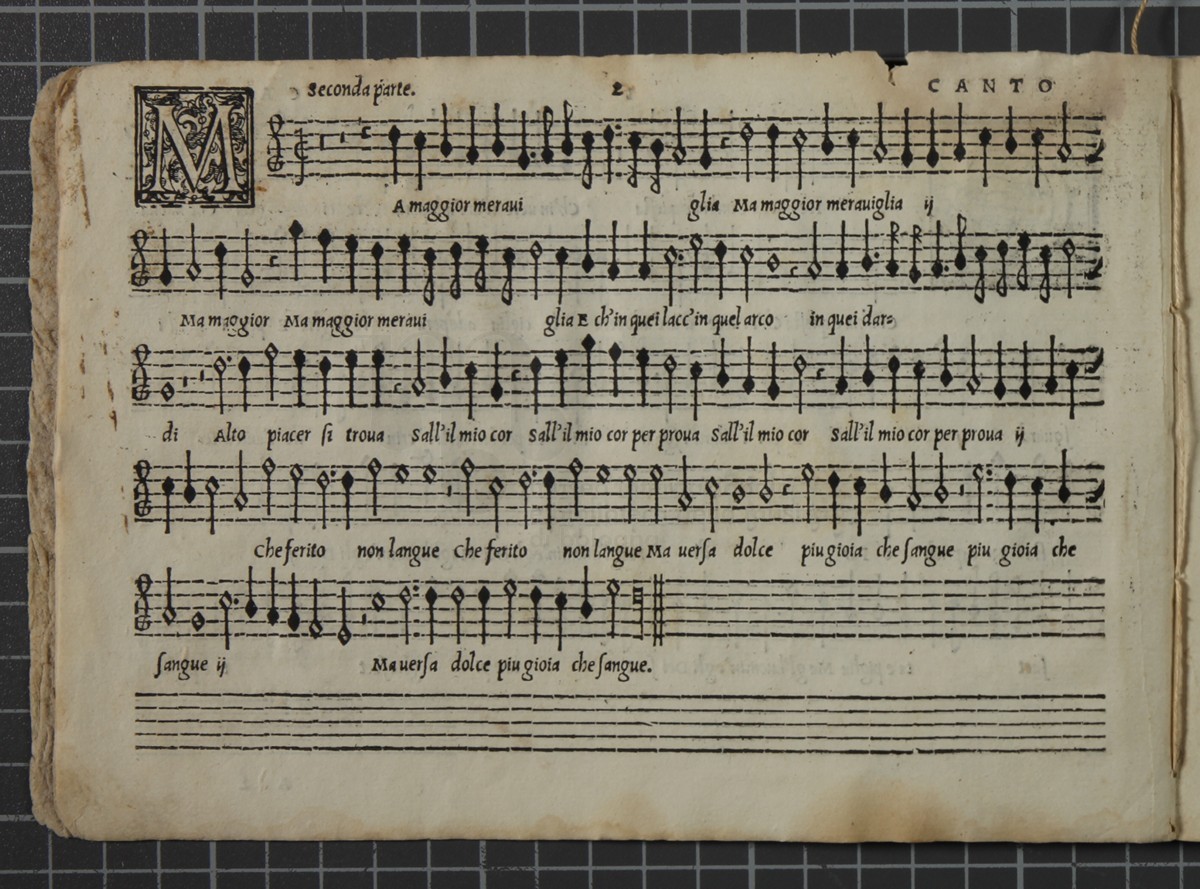 Seconda parte. 2 CANTO
MA maggior meraui glia Ma maggior merauiglia ij
Ma maggior Ma maggior meraui glia E ch'in quei lacc'in quel arco in quei dar=
di Alto piacer si troua Sall'il mio cor Sall'il mio cor per proua Sall'il mio cor Sall'il mio cor per proua ij
Che ferito non langue Che ferito non langue Ma uersa dolce piu gioia che sangue piu gioia che
sangue ij Ma uersa dolce piu gioia che sangue.